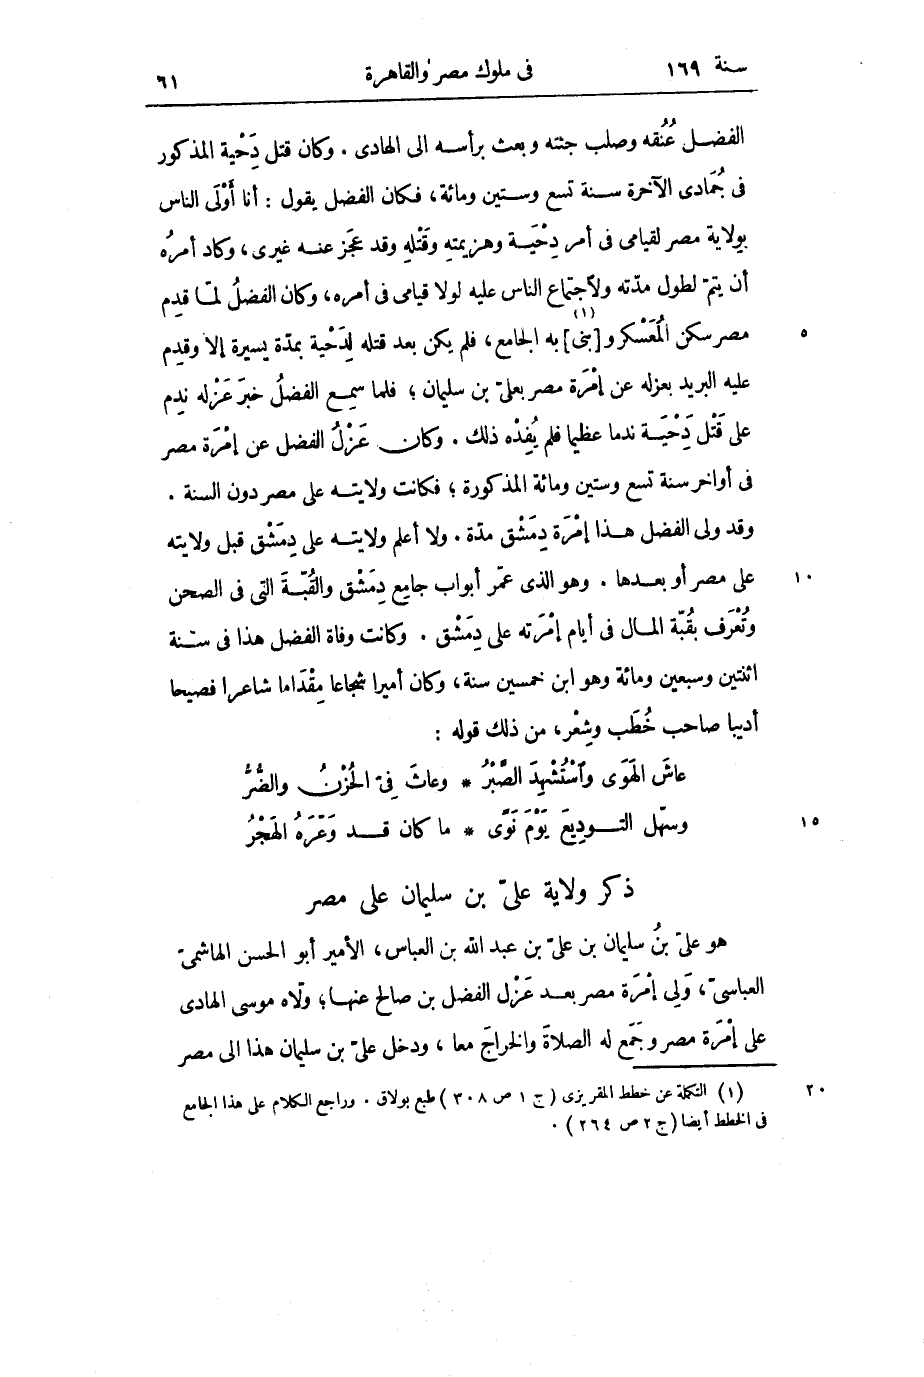 سنة ١٦٩ فى ملوك مصر والقاهرة ٦١
الفضل عُنُقه وصلب جثته وبعث برأسه الى الهادى . وكان قتل دَحْية المذكور
فى جُمَادى الآخرة سنة تسع وستين ومائة، فكان الفضل يقول : أنا أَوْلَى الناس
بولاية مصر لقيامى فى أمر دِحْيَة وهزيمتِه وقَتْلِه وقد عَجَز عنه غيرى، وكاد أمرُه
أن يتمّ لطول مدّته ولآجتماع الناس عليه لولا قيامى فى أمره، وكان الفضلُ لمّا قدِم
مصر سكن المُعَسْكر و[بنى](١) به الجامع، فلم يكن بعد قتله لِدَحْية بمدّة يسيرة إلا وقدِم ٥
عليه البريد بعزله عن إمْرَة مصر بعلىّ بن سليمان ؛ فلما سمِع الفضلُ خبرَ عَزْله ندِم
على قَتْل دَحْيَة ندما عظيما فلم يُفِدْه ذلك . وكان عَزْلُ الفضل عن إمْرَة مصر
فى أواخر سنة تسع وستين ومائة المذكورة ؛ فكانت ولايته على مصر دون السنة .
وقد ولى الفضل هذا إمْرَة دِمَشْق مدّة . ولا أعلم ولايته على دِمَشْق قبل ولايته
على مصر أو بعدها . وهو الذى عمّر أبواب جامع دِمَشْق والقُبّةَ التى فى الصحن ١٠
وتُعْرَف بقُبّة المال فى أيام إمْرَته على دِمَشْق . وكانت وفاة الفضل هذا فى سنة
اثنتين وسبعين ومائة وهو ابن خمسين سنة، وكان أميرا شجاعا مِقْداما شاعرا فصيحا
أديبا صاحب خُطَب وشِعْر، من ذلك قوله :
عاشَ الهَوَى وآسْتُشْهِدَ الصَّبْرُ * وعاثَ فىّ الحُزْنُ والضُّرُّ
وسهّل التوديعَ يَوْمَ نَوًى * ما كان قد وَعّرَهُ الهَجْرُ ١٥
ذكر ولاية علىّ بن سليمان على مصر
هو علىّ بنُ سليمان بن علىّ بن عبد الله بن العباس، الأمير أبو الحسن الهاشمىّ
العباسىّ، وَلِى إمْرَة مصر بعد عَزْل الفضل بن صالح عنها؛ ولّاه موسى الهادى
على إمْرَة مصر وجَمَع له الصلاةَ والخراجَ معا ، ودخل علىّ بن سليمان هذا الى مصر
(١) التكملة عن خطط المقريزى (ج ١ ص ٣٠٨) طبع بولاق . وراجع الكلام على هذا الجامع ٢٠
فى الخطط أيضا (ج ٢ ص ٢٦٤) .